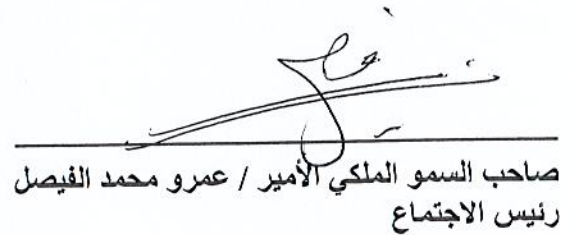 صاحب السمو الملكي الأمير / عمرو محمد الفيصل
رئيس الاجتماع